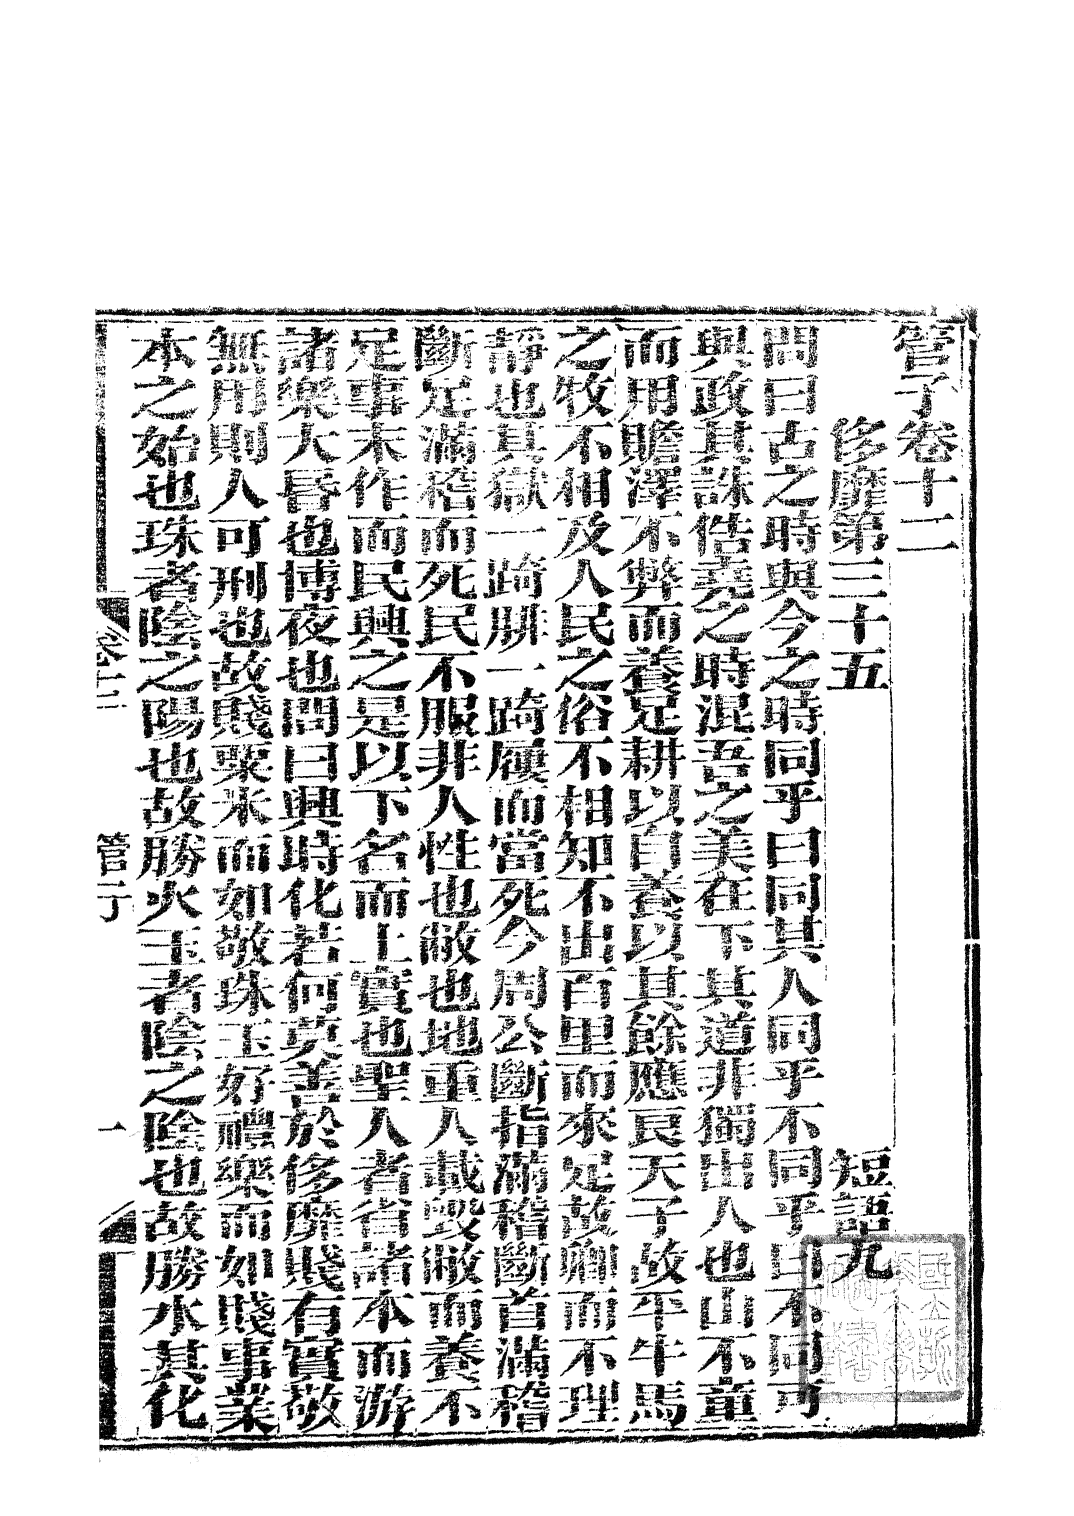 管子卷十二
侈靡第三十五 短語九
問曰古之時與今之時同乎曰同其人同乎不同乎曰不同可
與政其誅俈堯之時混吾之美在下其道非獨出人也山不童
而用贍澤不弊而養足耕以自養以其餘應良天子故平牛馬
之牧不相及人民之俗不相知不出百里而來足故卿而不理
靜也其獄一踦腓一踦屨而當死今周公斷指滿稽斷首滿稽
斷足滿稽而死民不服非人性也敝也地重人載毀敝而養不
足事末作而民興之是以下名而上實也聖人者省諸本而游
諸樂大昏也博夜也問曰興時化若何莫善於侈靡賤有實敬
無用則人可刑也故賤粟米而如敬珠玉好禮樂而如賤事業
本之始也珠者陰之陽也故勝火玉者陰之陰也故勝水其化
卷十二 管子 一